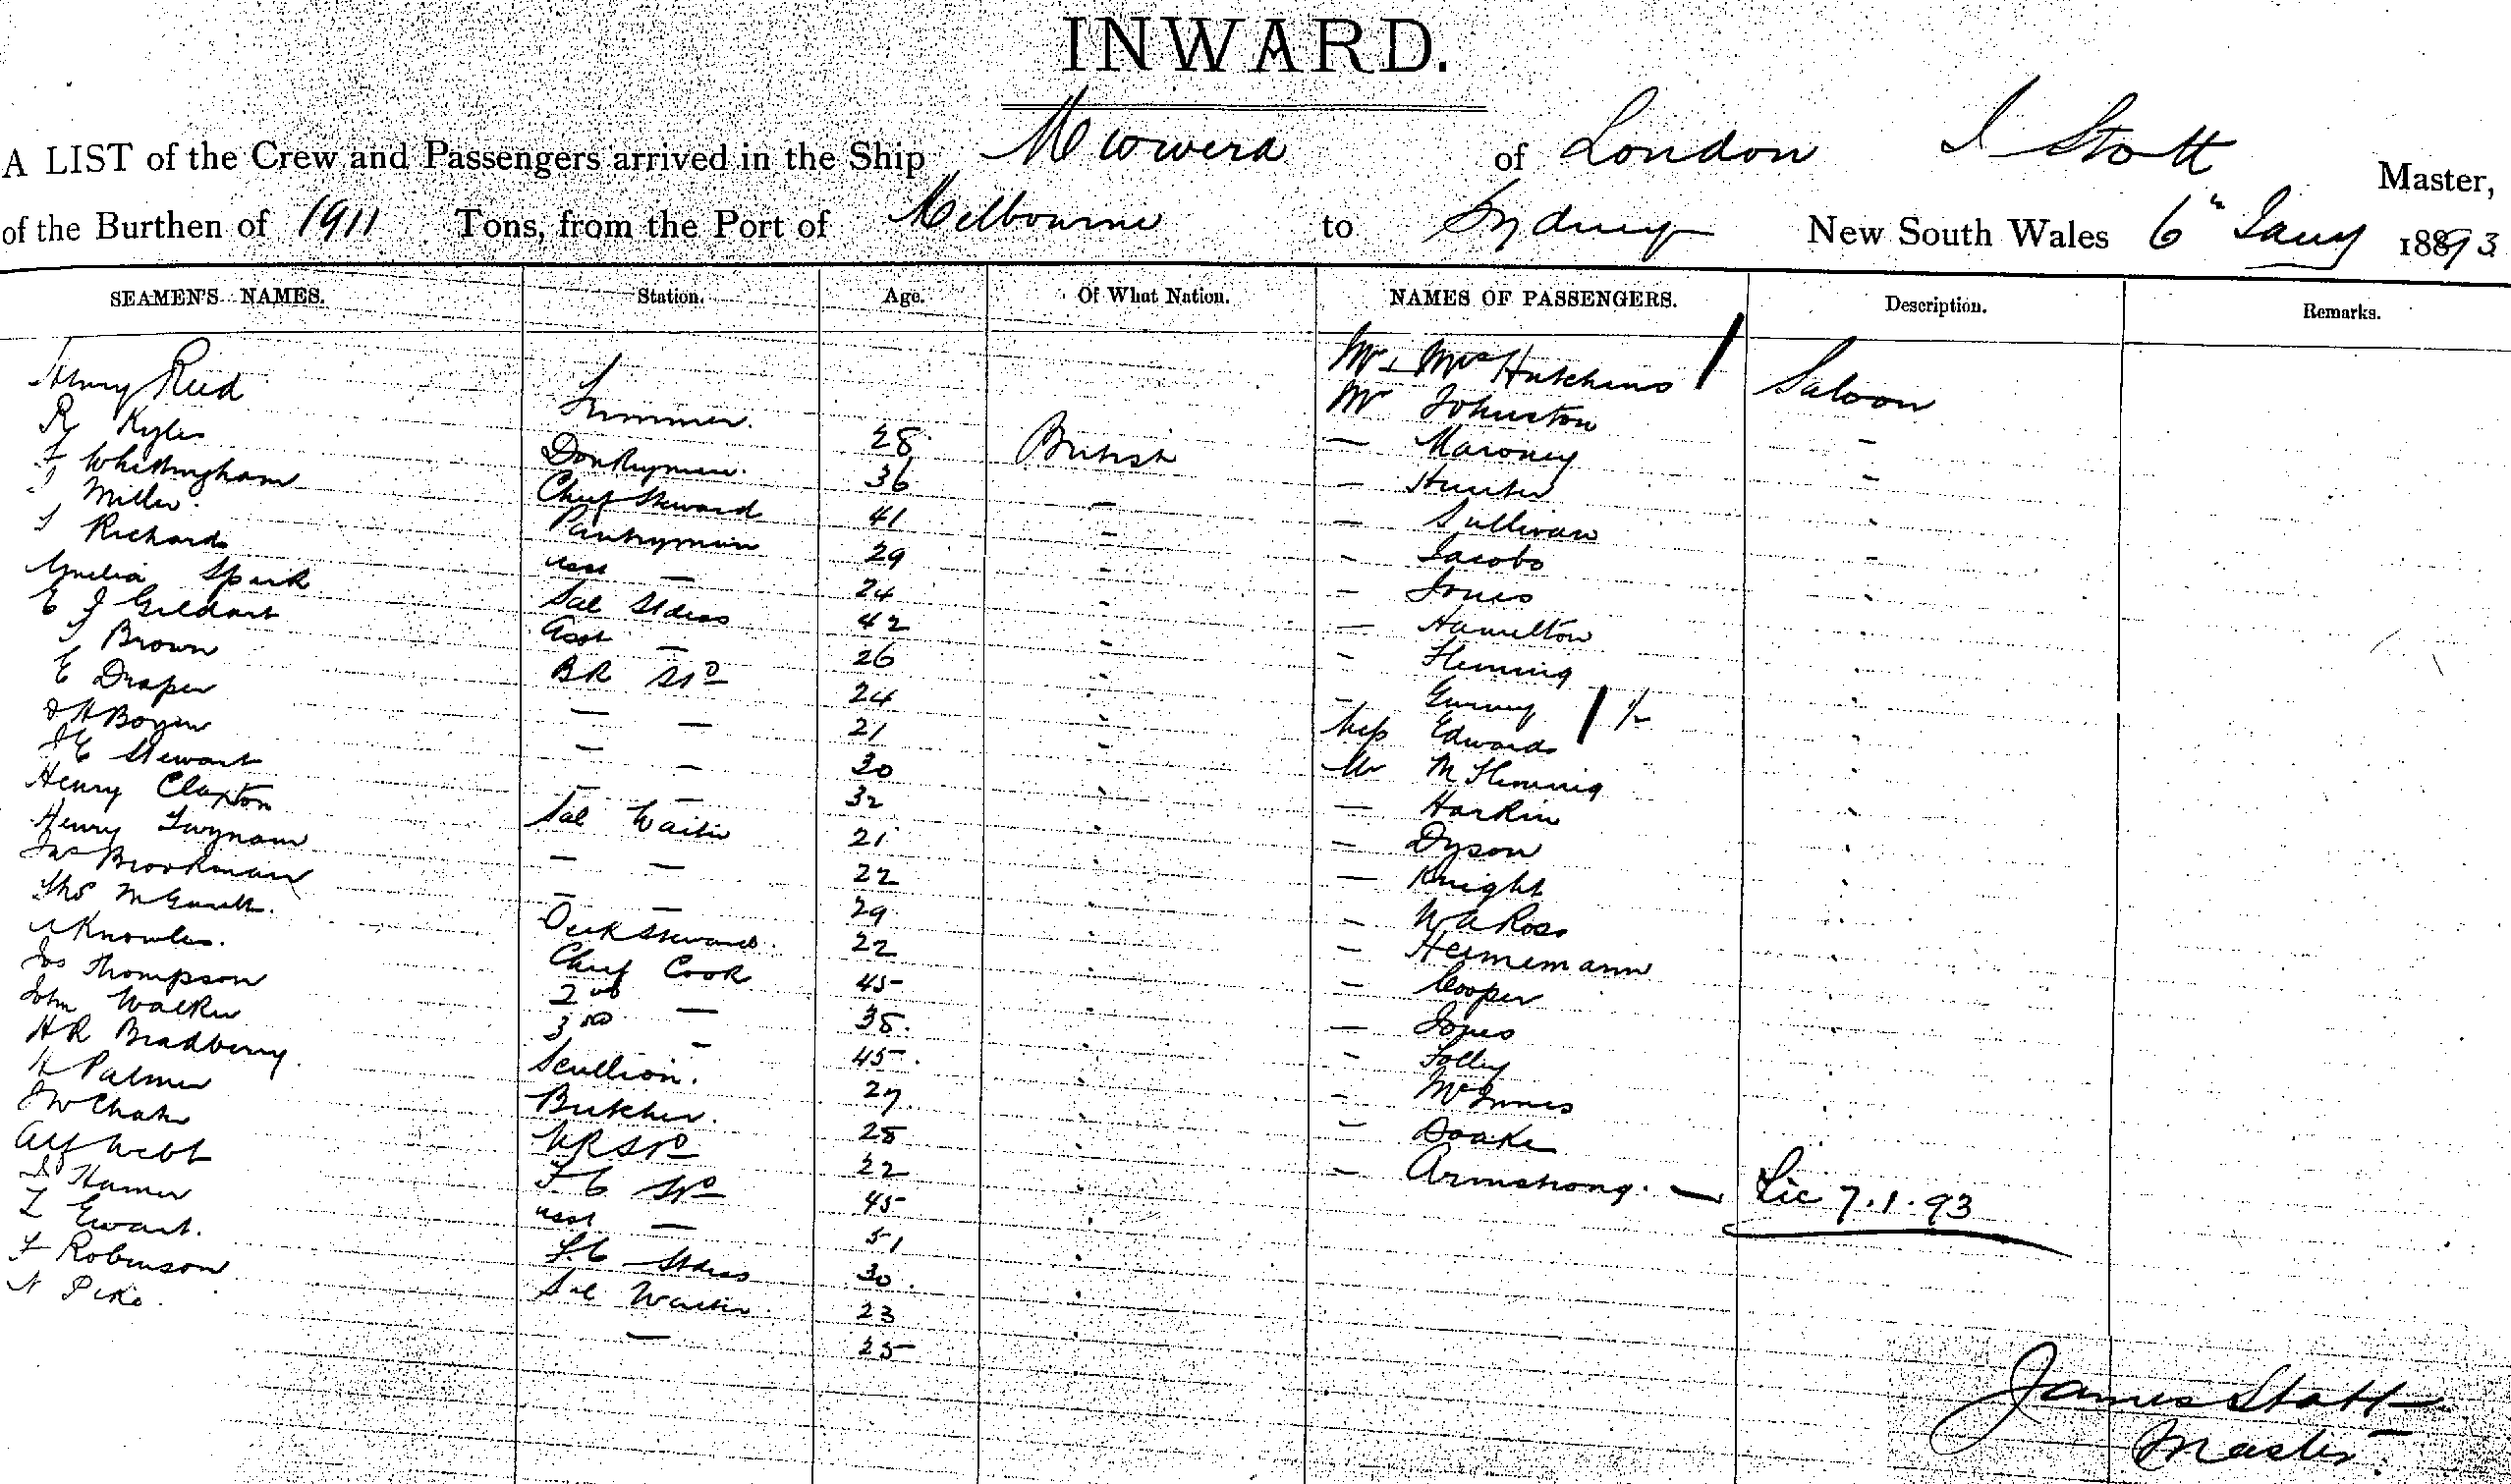 INWARD.
A LIST of the Crew and Passengers arrived in the Ship Miowera of London J Stott Master,
of the Burthen of 1911 Tons, from the Port of Melbourne to Sydney New South Wales 6th Jany 1893
SEAMEN'S NAMES. Station. Age. Of What Nation. NAMES OF PASSENGERS. Description. Remarks.
Henry Reed Trimmer. 28 British Mr & Mrs Hutchins Saloon
R Kyles Donkeyman. 36 - Mr Johnston -
F Whittingham Chief Steward 41 - — Maroney -
J Miller. Pantryman 29 - — Hunter -
J Richards asst — 24 - — Sullivan -
Amelia Spark Sal Stdess 42 - - Jacobs -
E J Gildart asst — 26 - — Jones -
J Brown BR Std 24 - — Hamilton -
E Draper — — 21 - - Fleming -
J H Boyer — — 30 - - Gurney 1/2 -
J E Stewart — — 32 - Miss Edwards -
Henry Clapton Sal Waiter 21 - Mr M Fleming -
Henry Twynam — — 22 - — Harkin -
Jas Brookman — — 29 - — Dyson -
Thos McGrath. Deck Steward. 22 - — Knight -
A Knowles. Chief Cook 45 - - W A Ross -
Jas Thompson 2nd — 38. - - Heinemann -
John Walker 3rd - 45. - - Cooper -
H R Bradberry. Scullion. 27. - — Jones -
H Palmer Butcher. 28 - - Folley -
J W Chate Std 22 - - McInnes
Alf Webb F.C Std 45 - - Doake
J Hamer asst — 51 - - Armstrong. — Lic 7.1.93
L Ewart. F.C Stdess 30. -
F Robinson Sal Waiter. 23 -
N Pike. — 25 -
James Stott
Master.